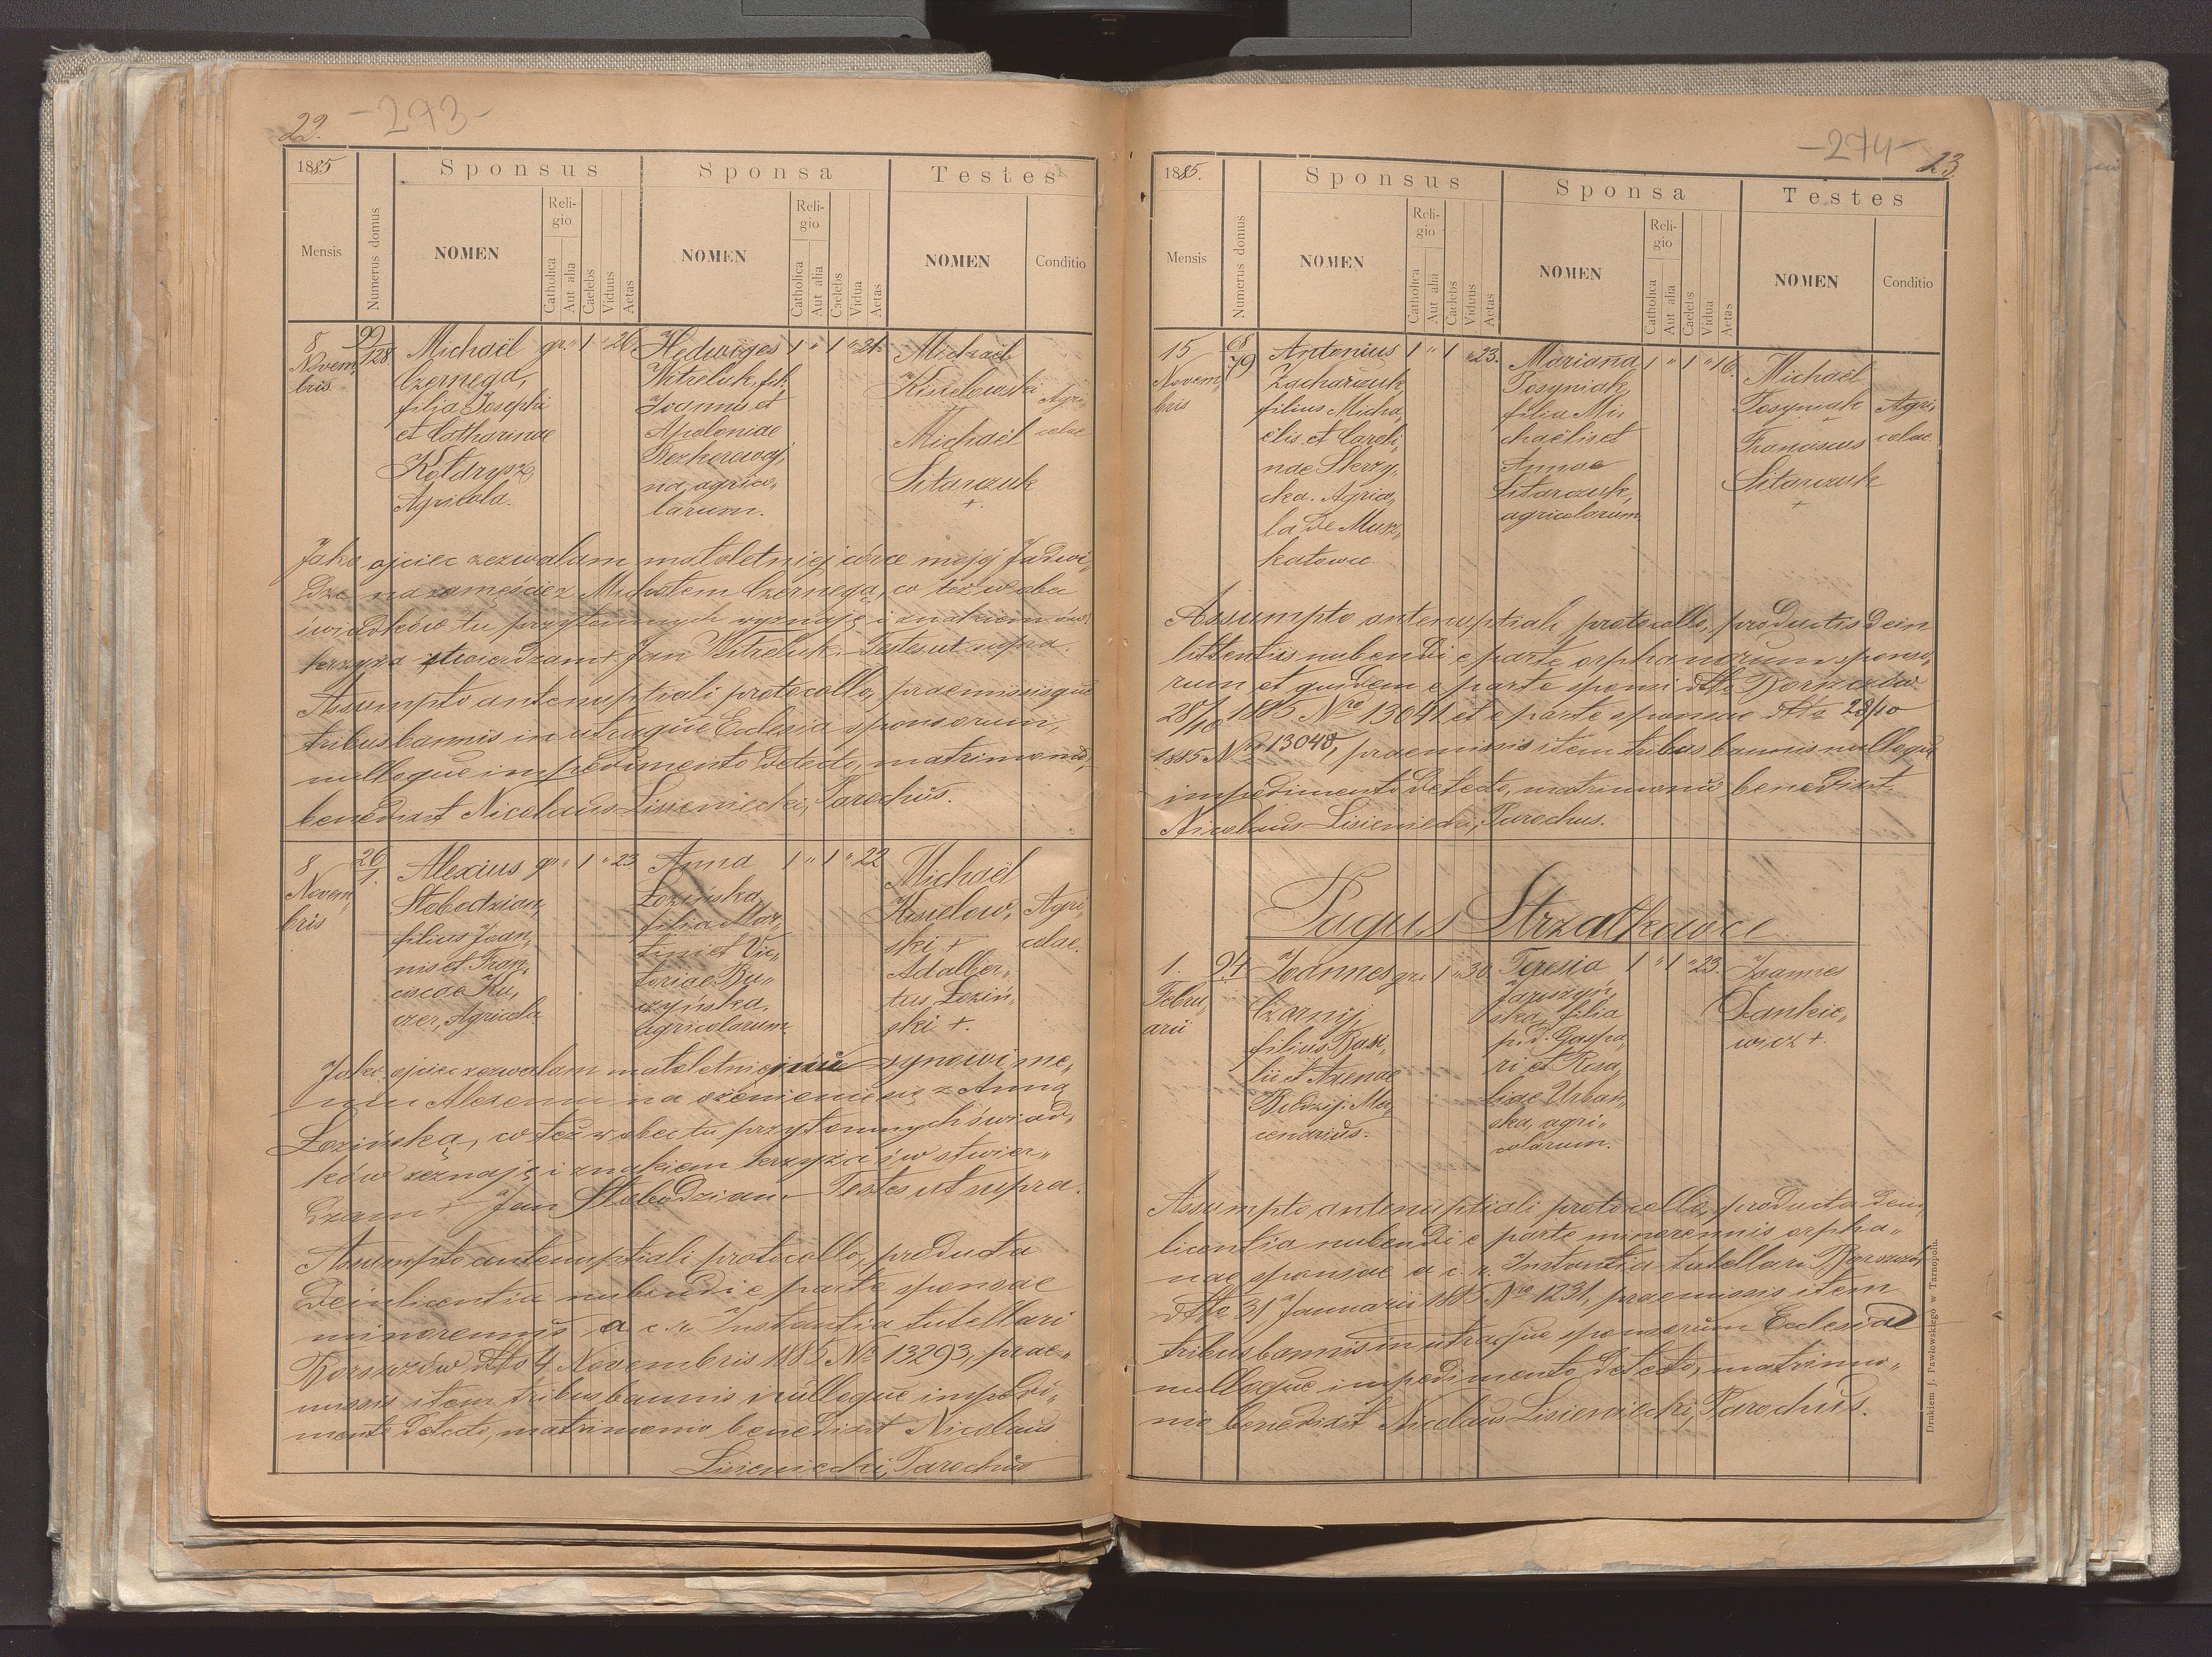 22. -273-
1885
Sponsus
Sponsa
Testes
Mensis
Numerus domus
NOMEN
Religio
Catholica
Aut alia
Caelebs
Viduus
Aetas
NOMEN
Religio
Catholica
Aut alia
Caelebs
Vidua
Aetas
NOMEN
Conditio
8
Novem„
bris
99/128
Michaël
Czernega,
filia Josephi
et Catharinae
Kołdrysz,
Agricola.
gr. " 1 " 26.
Hedwiges
Witreluk, fil.
Joannis et
Apoloniae
Bezkorowaj„
na, agrico„
larum.
1 " 1 " 21.
Michaël
Kisielewski
Michaël
Sitarczuk
+.
Agri„
colae
Jako ojciec zezwalam małoletniej córce mojej Jadwi„
dze na zamęście z Michałem Czernegą, co też w obec
świadków tu przytomnych wyznaję i znakiem św.
krzyża stwierdzam + Jan Witreluk. Testes ut supra.
Assumpto antenuptiali protocollo, praemissisque
tribus bannis in utraque Ecclesia sponsorum,
nulloque impedimento detecto, matrimonio,
benedixit Nicolaus Lisieniecki, Parochus.
8
Novem„
bris
26/1.
Alexius
Słobodzian,
filius Joan„
nis et Fran„
ciscae Ku„
czer, Agricola.
gr. " 1 " 23
Anna
Łozińska,
filia Mar„
tini et Vic„
toriae Bu„
czyńska,
agricolarum.
1 " 1 " 22
Michaël
Kisielew„
ski +
Adalber„
tus Łoziń„
ski +.
Agri„
colae.
Jako ojciec zezwalam małoletniemu synowi me„
mu Alexemu na ożenienie się z Anną
Łozińską, co też w obec tu przytomnych świad„
ków zeznaję i znakiem krzyża św stwier„
dzam + Jan Słobodzian. Testes ut supra.
Assumpto antenuptiali protocollo, producta
dein licentia nubendi e parte sponsae
minorennis a c. r. Instantia tutellari
Borszczów dtto 4 Novembris 1885 Nro 13293, prae„
missis item tribus bannis nulloque impedi„
mento detecto, matrimonio benedixit Nicolaus
Lisieniecki, Parochus
-274- 23.
1885.
Sponsus
Sponsa
Testes
Mensis
Numerus domus
NOMEN
Religio
Catholica
Aut alia
Caelebs
Viduus
Aetas
NOMEN
Religio
Catholica
Aut alia
Caelebs
Vidua
Aetas
NOMEN
Conditio
15
Novem„
bris
68/79
Antonius
Zacharczuk,
filius Micha„
ëlis et Caroli„
nae Skrzy„
cka. Agrico„
la de Musz„
katowce.
1 " 1 " 23.
Mariana
Posyniak,
filia Mi„
chaëlis et
Annae
Sitarczuk,
agricolarum.
1 " 1 " 16.
Michaël
Posyniak
+
Franciscus
Sitarczuk
+
Agri„
colae.
Assumpto antenuptiali protocollo, productis dein
littentiis nubendi e parte orphanorum sponso„
rum et quidem e parte sponsi dtto Borszczów
28/10 1885 Nro 13041 et e parte sponsae dtto 28/10
1885 Nro 13048, praemissis item tribus bannis nulloque
impedimento detecto, matrimonio benedixit
Nicolaus Lisieniecki, Parochus.
Pagus Strzałkowce
1
Febru„
arii
94
Joannes
Czornij
filius Basi„
lii et Axenae
Mer„
cenarius.
gr. 1 " 30.
Teresia
Jaruszyń„
ska, filia
p. d. Gaspa„
ri et Rosa„
liae Urbań„
ska, agri„
colarum.
1 " 1 " 23.
Joannes
Dankie„
wicz +.
Assumpto antenuptiali protocollo, producta dein
licentia nubendi e parte minorennis orpha„
nae sponsae a c. r. Instantia tutellari Borszczów
dtto 31 Januarii 1885 Nro 1231, praemissis item
tribus bannis in utraque sponsorum Ecclesia
nulloque impedimento detecto, matrimo„
nio benedixit Nicolaus Lisieniecki, Parochus.
Drukiem J. Pawłowskiego w Tarnopolu.